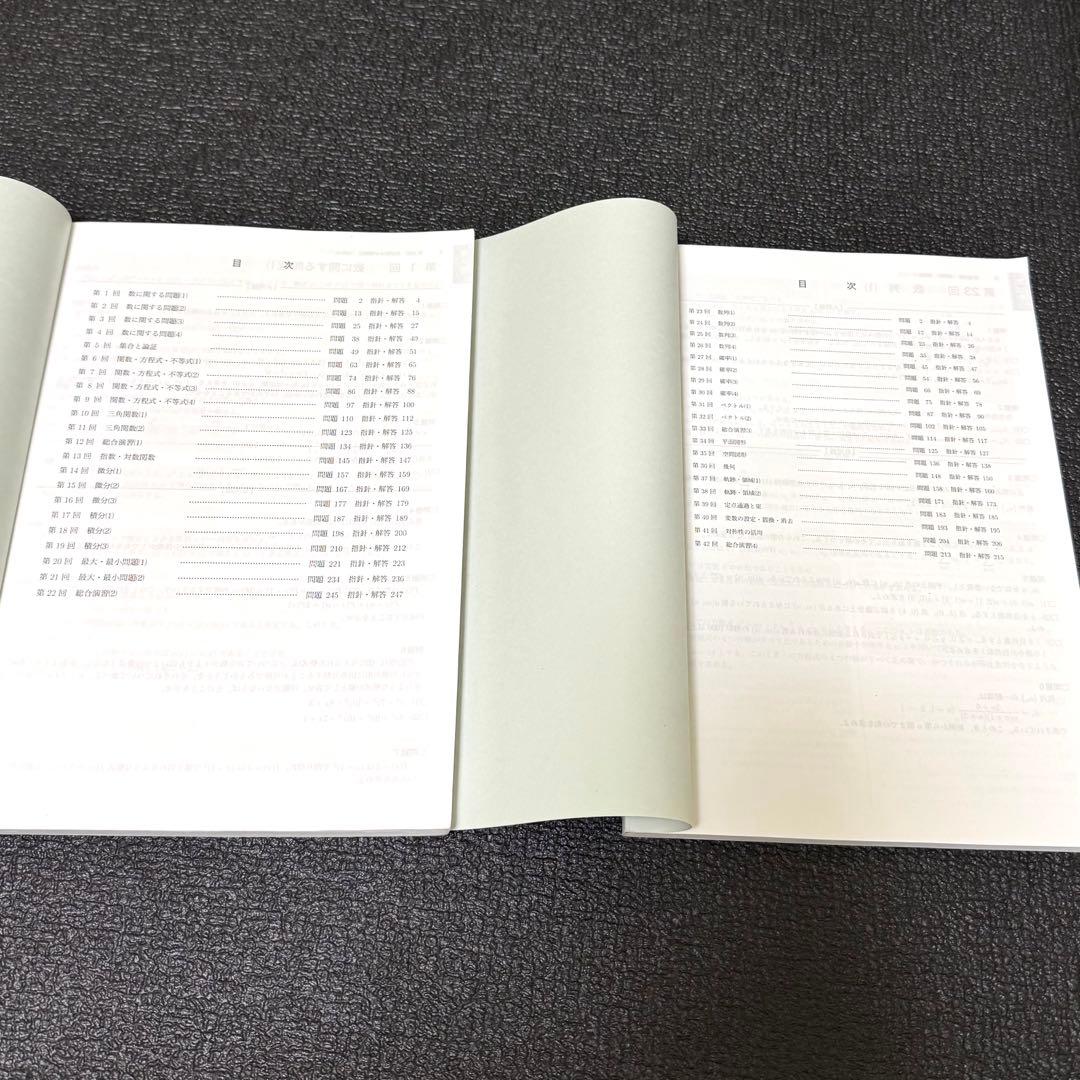 目 次
第 1 回 数に関する問題(1) 問題 2 指針・解答 4
第 2 回 数に関する問題(2) 問題 13 指針・解答 15
第 3 回 数に関する問題(3) 問題 25 指針・解答 27
第 4 回 数に関する問題(4) 問題 38 指針・解答 40
第 5 回 集合と論証 問題 49 指針・解答 51
第 6 回 関数・方程式・不等式(1) 問題 63 指針・解答 65
第 7 回 関数・方程式・不等式(2) 問題 74 指針・解答 76
第 8 回 関数・方程式・不等式(3) 問題 86 指針・解答 88
第 9 回 関数・方程式・不等式(4) 問題 97 指針・解答 100
第 10 回 三角関数(1) 問題 110 指針・解答 112
第 11 回 三角関数(2) 問題 123 指針・解答 125
第 12 回 総合演習(1) 問題 134 指針・解答 136
第 13 回 指数・対数関数 問題 145 指針・解答 147
第 14 回 微分(1) 問題 157 指針・解答 159
第 15 回 微分(2) 問題 167 指針・解答 169
第 16 回 微分(3) 問題 177 指針・解答 179
第 17 回 積分(1) 問題 187 指針・解答 189
第 18 回 積分(2) 問題 198 指針・解答 200
第 19 回 積分(3) 問題 210 指針・解答 212
第 20 回 最大・最小問題(1) 問題 221 指針・解答 223
第 21 回 最大・最小問題(2) 問題 234 指針・解答 236
第 22 回 総合演習(2) 問題 245 指針・解答 247
目 次
第 23 回 数列(1) 問題 2 指針・解答 4
第 24 回 数列(2) 問題 12 指針・解答 14
第 25 回 数列(3) 問題 23 指針・解答 26
第 26 回 数列(4) 問題 35 指針・解答 38
第 27 回 確率(1) 問題 45 指針・解答 47
第 28 回 確率(2) 問題 54 指針・解答 56
第 29 回 確率(3) 問題 66 指針・解答 69
第 30 回 確率(4) 問題 75 指針・解答 78
第 31 回 ベクトル(1) 問題 87 指針・解答 90
第 32 回 ベクトル(2) 問題 102 指針・解答 105
第 33 回 総合演習(3) 問題 114 指針・解答 117
第 34 回 平面図形 問題 125 指針・解答 127
第 35 回 空間図形 問題 136 指針・解答 138
第 36 回 幾何 問題 148 指針・解答 150
第 37 回 軌跡・領域(1) 問題 158 指針・解答 160
第 38 回 軌跡・領域(2) 問題 171 指針・解答 173
第 39 回 定点通過と束 問題 183 指針・解答 185
第 40 回 変数の設定・置換・消去 問題 193 指針・解答 195
第 41 回 対称性の活用 問題 204 指針・解答 206
第 42 回 総合演習(4) 問題 213 指針・解答 215